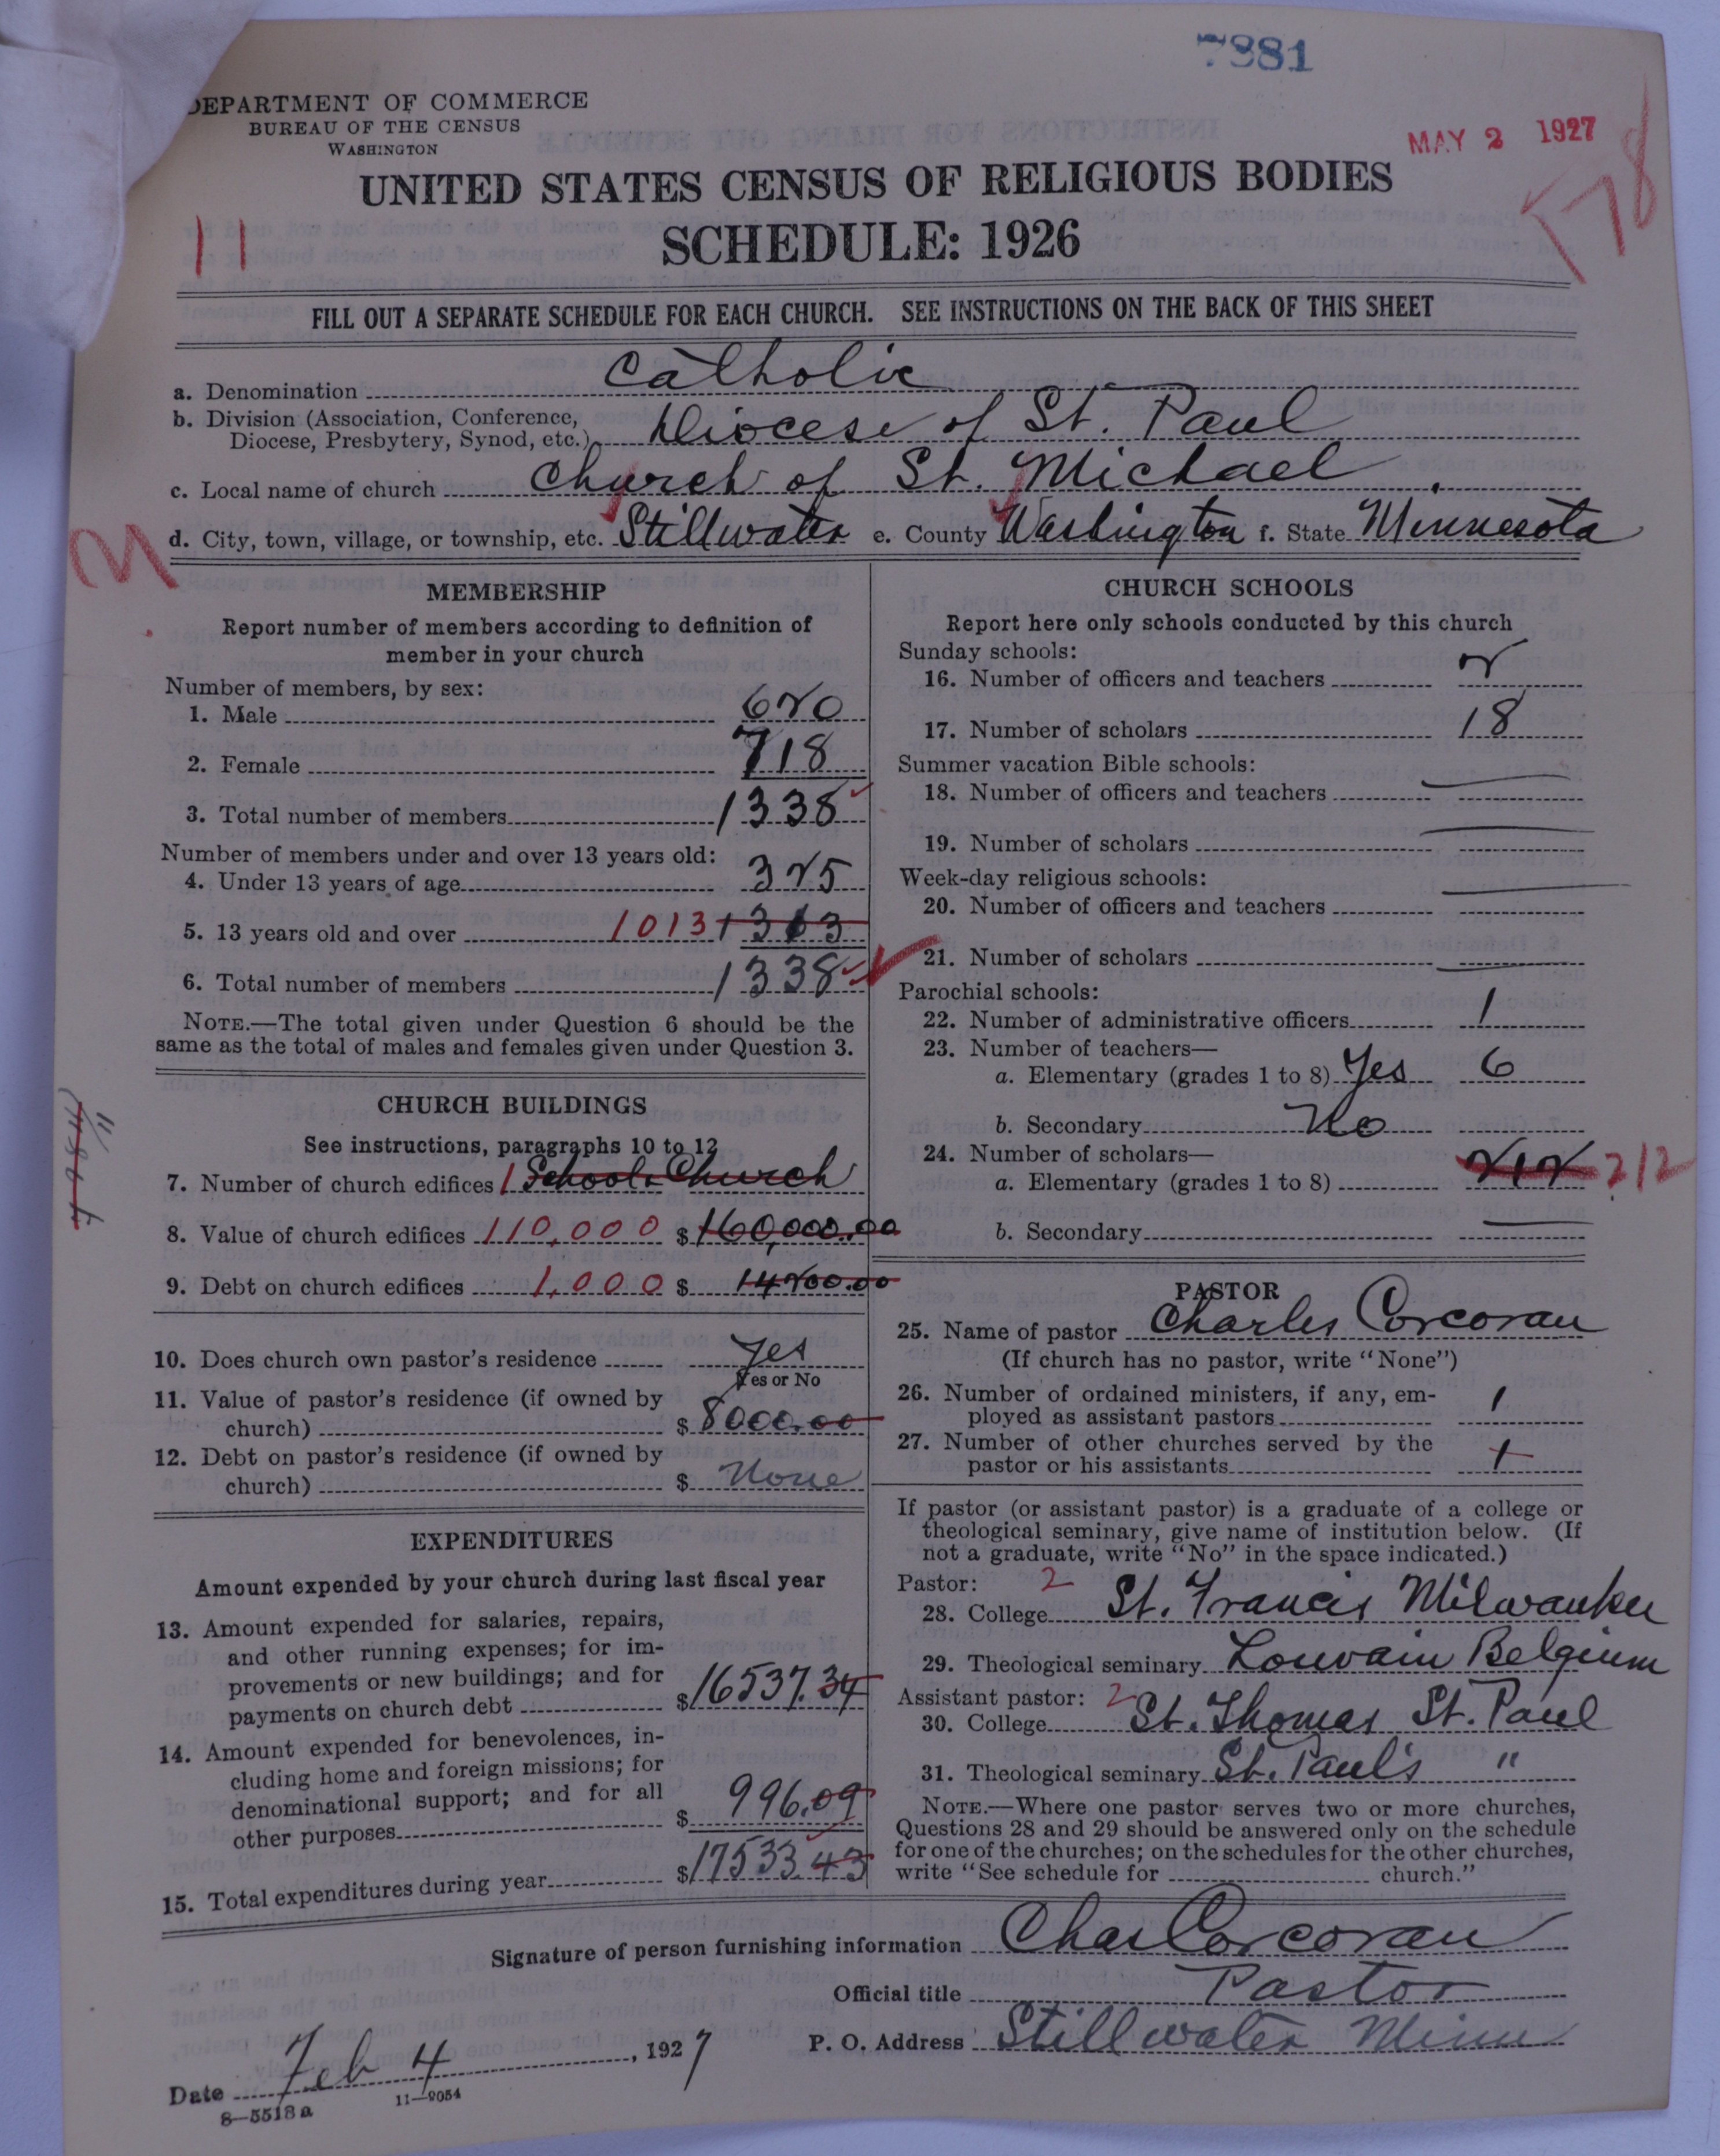 7881
DEPARTMENT OF COMMERCE
BUREAU OF THE CENSUS
WASHINGTON
MAY 2 1927
UNITED STATES CENSUS OF RELIGIOUS BODIES
SCHEDULE: 1926
11
178
FILL OUT A SEPARATE SCHEDULE FOR EACH CHURCH. SEE INSTRUCTIONS ON THE BACK OF THIS SHEET
a. Denomination Catholic
b. Division (Association, Conference,
Diocese, Presbytery, Synod, etc.) Diocese of St. Paul
c. Local name of church Church of St. Michael
d. City, town, village, or township, etc. Stillwater e. County Washington f. State Minnesota
MEMBERSHIP
Report number of members according to definition of
member in your church
Number of members, by sex:
1. Male 620
2. Female 718
3. Total number of members 1338
Number of members under and over 13 years old:
4. Under 13 years of age 325
5. 13 years old and over 1013 1313
6. Total number of members 1338
NOTE.—The total given under Question 6 should be the
same as the total of males and females given under Question 3.
CHURCH BUILDINGS
See instructions, paragraphs 10 to 12
7. Number of church edifices 1 School & Church
8. Value of church edifices 110,000 $ 160,000.00
9. Debt on church edifices 1,000 $ 14200.00
10. Does church own pastor's residence Yes
Yes or No
11. Value of pastor's residence (if owned by
church) $ 8000.00
12. Debt on pastor's residence (if owned by
church) $ None
EXPENDITURES
Amount expended by your church during last fiscal year
13. Amount expended for salaries, repairs,
and other running expenses; for im-
provements or new buildings; and for
payments on church debt $ 16537.34
14. Amount expended for benevolences, in-
cluding home and foreign missions; for
denominational support; and for all
other purposes $ 996.09
15. Total expenditures during year $ 17533.43
CHURCH SCHOOLS
Report here only schools conducted by this church
Sunday schools:
16. Number of officers and teachers 2
17. Number of scholars 18
Summer vacation Bible schools:
18. Number of officers and teachers
19. Number of scholars
Week-day religious schools:
20. Number of officers and teachers
21. Number of scholars
Parochial schools:
22. Number of administrative officers 1
23. Number of teachers—
a. Elementary (grades 1 to 8) Yes 6
b. Secondary No
24. Number of scholars—
a. Elementary (grades 1 to 8) 212 212
b. Secondary
PASTOR
25. Name of pastor Charles Corcoran
(If church has no pastor, write "None")
26. Number of ordained ministers, if any, em-
ployed as assistant pastors 1
27. Number of other churches served by the
pastor or his assistants 1
If pastor (or assistant pastor) is a graduate of a college or
theological seminary, give name of institution below. (If
not a graduate, write "No" in the space indicated.)
Pastor: 2
28. College St. Francis Milwaukee
29. Theological seminary Louvain Belgium
Assistant pastor: 2
30. College St. Thomas St. Paul
31. Theological seminary St. Paul's "
NOTE.—Where one pastor serves two or more churches,
Questions 28 and 29 should be answered only on the schedule
for one of the churches; on the schedules for the other churches,
write "See schedule for church."
Signature of person furnishing information Chas Corcoran
Official title Pastor
P. O. Address Stillwater Minn
Date Feb 4, 1927
8—5518a 11—9054